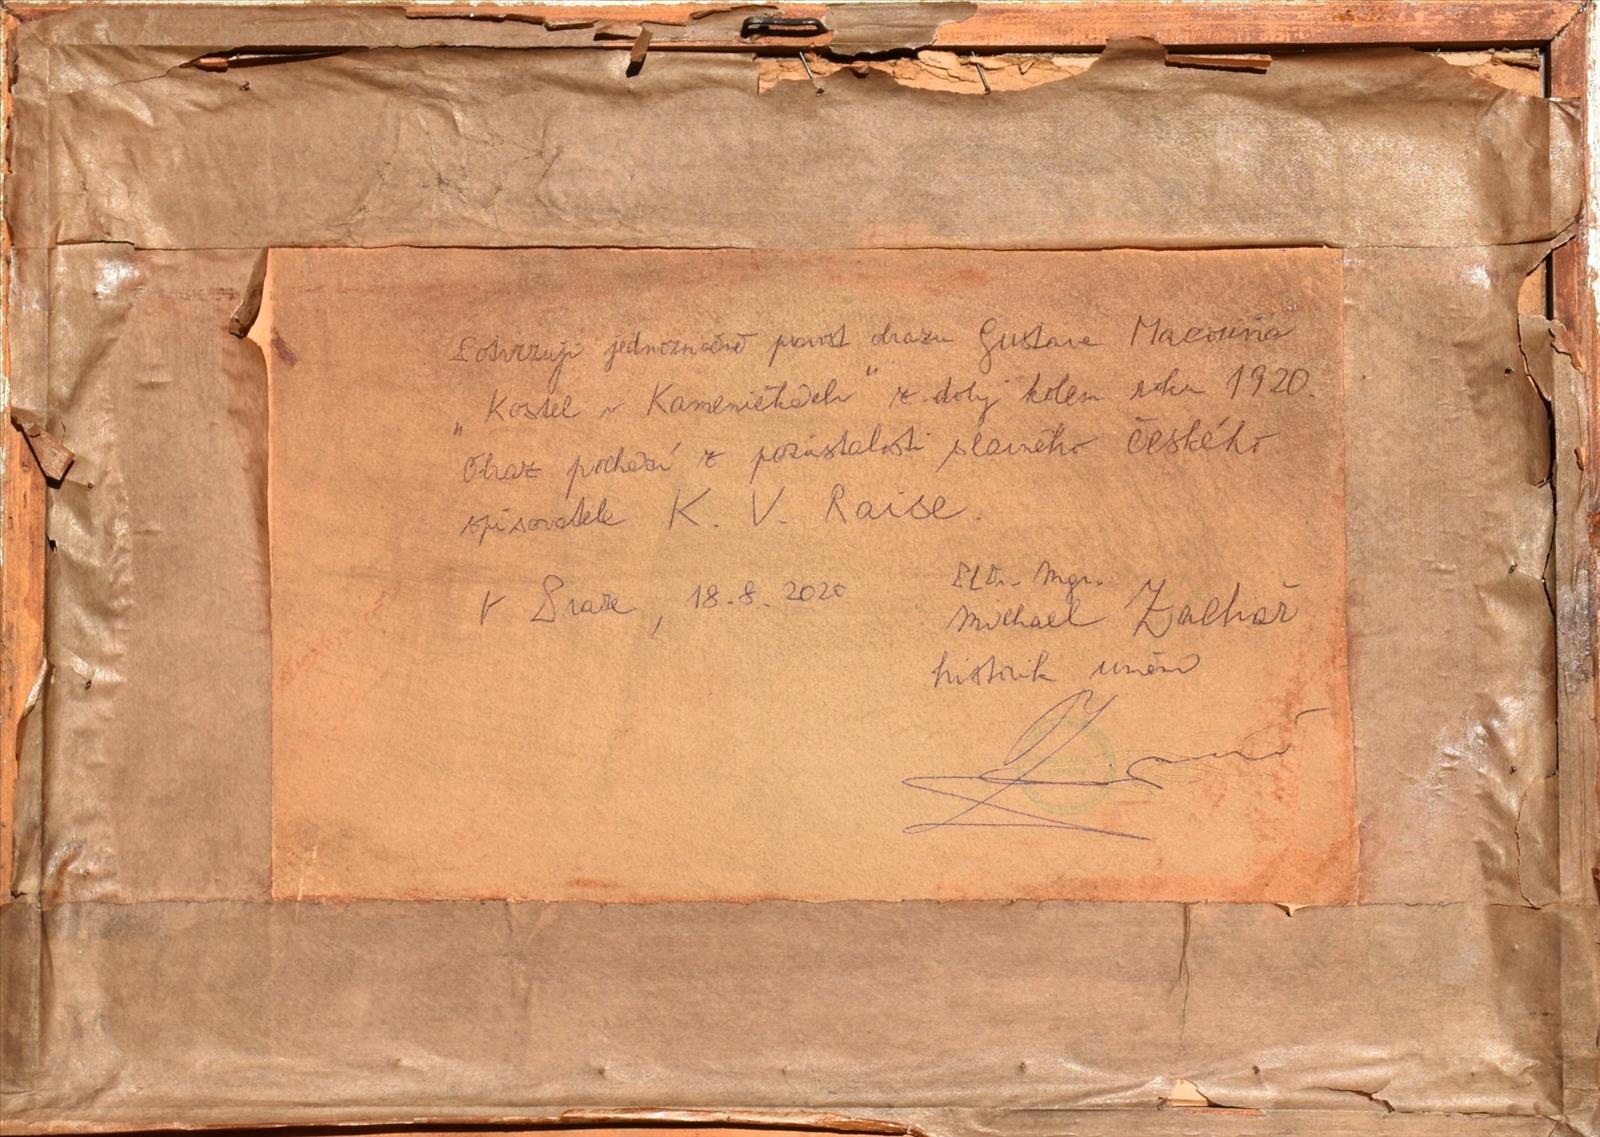 Potvrzuji jednoznačně pravost obrazu Gustava Macouna
„Kostel v Kameničkách" z doby kolem roku 1920.
Obraz pochází z pozůstalosti slavného českého
spisovatele K. V. Raise.
V Praze, 18.8.2020
PhDr. Mgr.
Michael Zachař
historik umění